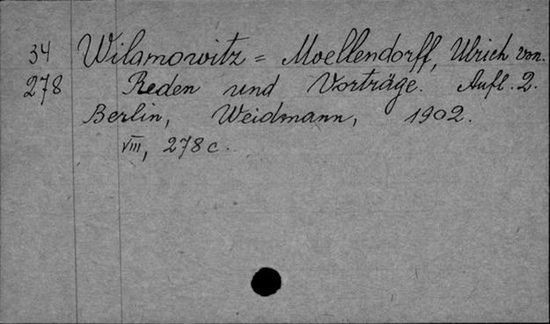 34 Wilamowitz = Moellendorff, Ulrich von.
278 Reden und Vorträge. Aufl. 2.
Berlin, Weidmann, 1902.
VIII, 278 c.